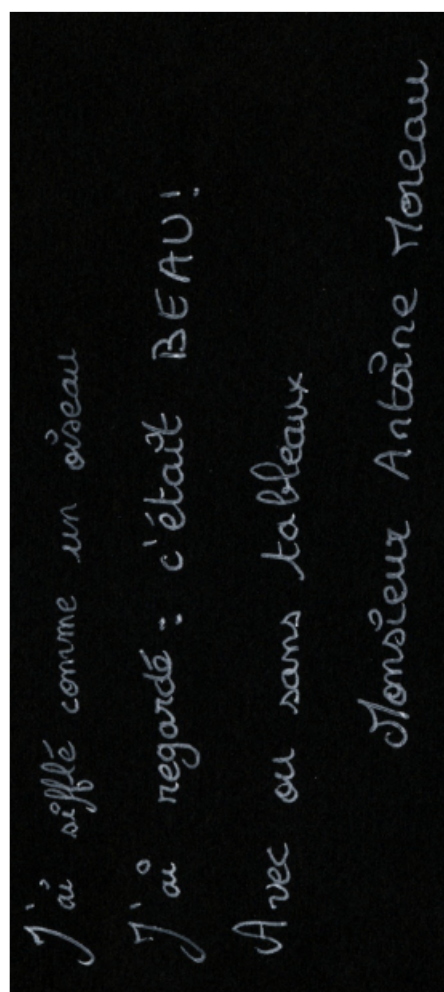 J'ai sifflé comme un oiseau
J'ai regardé : c'était BEAU!
Avec ou sans tableaux
Monsieur Antoine Moreau